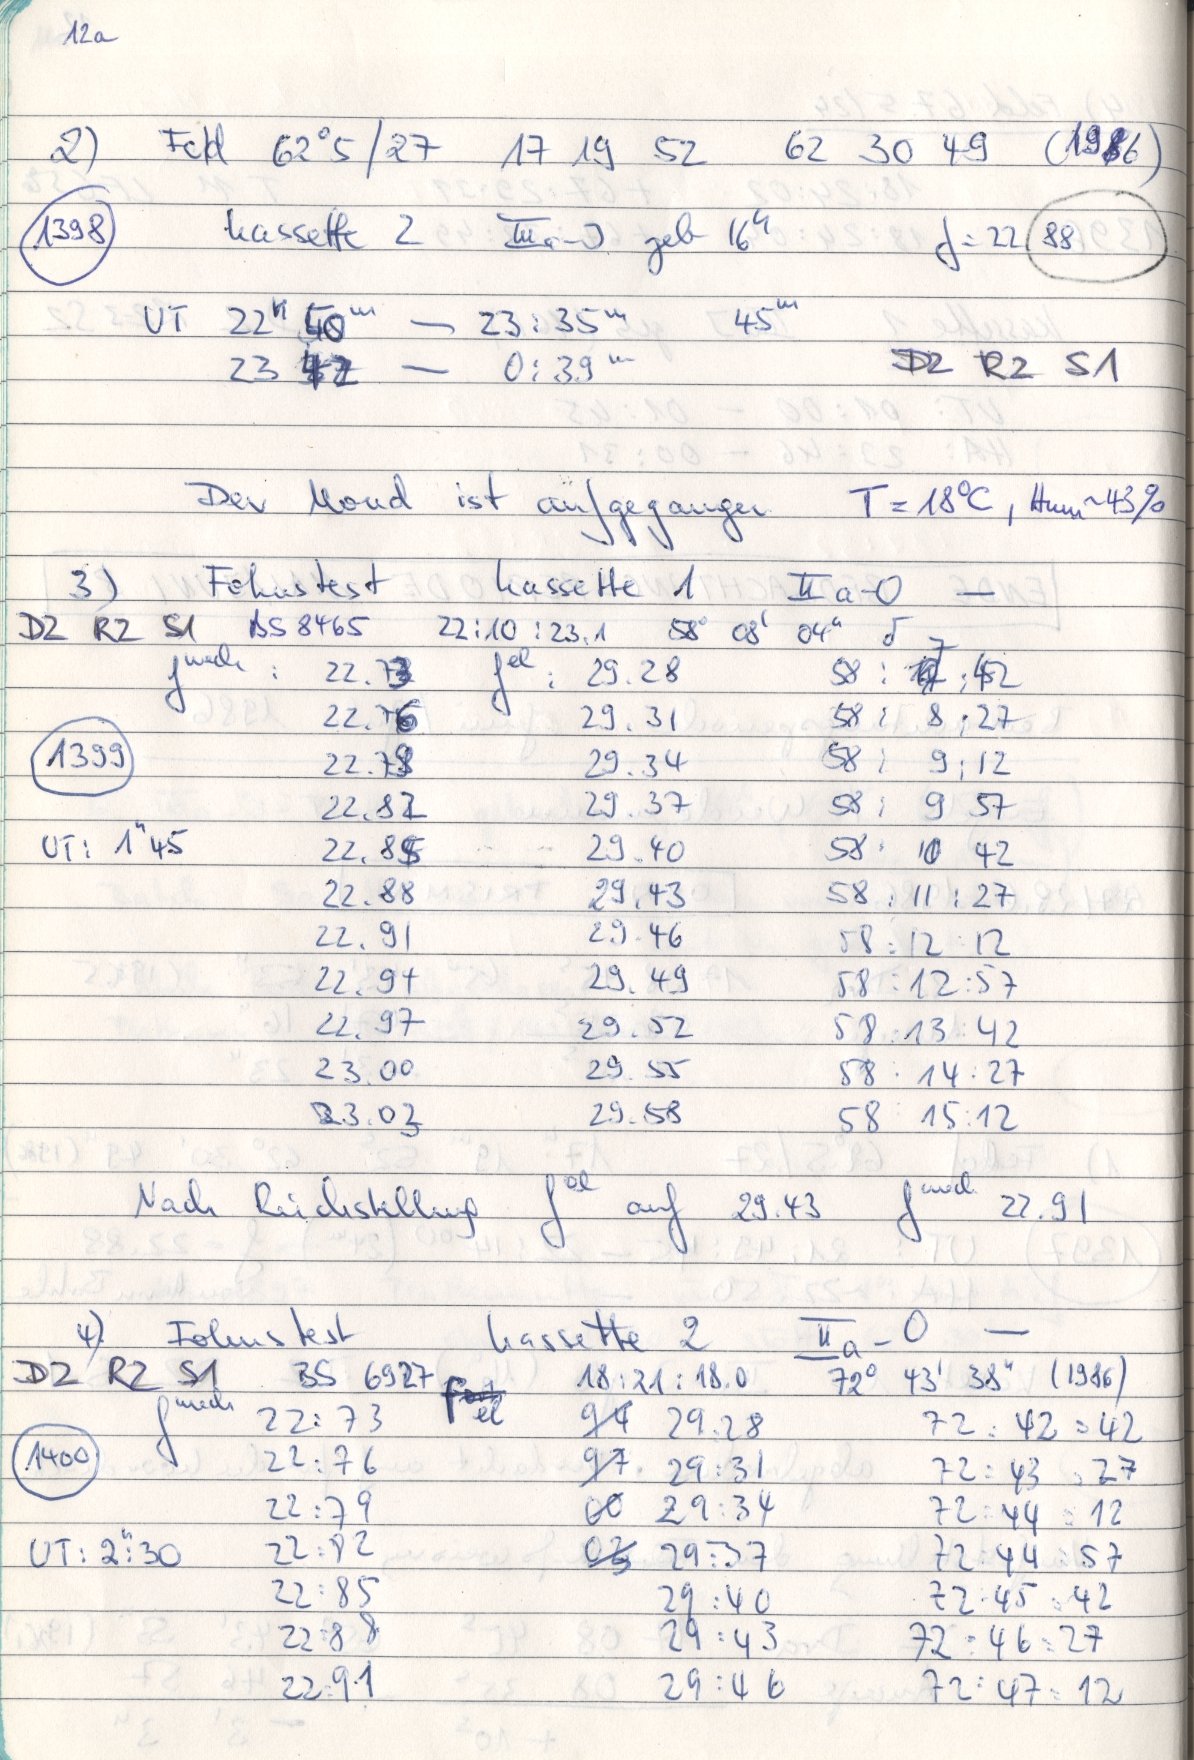 12a
2) Feld 62°5/27 17 19 52 62 30 49 (1986)
1398 Kassette 2 IIIa-O geb 16h f=22.88
UT 22h 50m — 23:35m 45m
23 42 — 0:39m D2 R2 S1
Der Mond ist aufgegangen T=18°C, Hum~43%
3) Fokustest Kassette 1 IIa-O —
D2 R2 S1 BS 8465 22:10:23.1 58° 08' 04" δ
fmech: 22.73 fel: 29.28 58: 7 :42
22.76 29.31 58: 8:27
1399 22.79 29.34 58: 9:12
22.82 29.37 58: 9 57
UT: 1h45 22.85 29.40 58: 10 42
22.88 29.43 58:11:27
22.91 29.46 58:12 12
22.94 29.49 58:12:57
22.97 29.52 58:13:42
23.00 29.55 58:14:27
23.03 29.58 58 15:12
Nach Rückstellung fel auf 29.43 fmech 22.91
4) Fokustest Kassette 2 IIa-O —
D2 R2 S1 BS 6927 18:21:18.0 72° 43' 38" (1986)
fmech 22:73 fel 94 29:28 72:42:42
1400 22:76 97 29:31 72:43:27
22:79 00 29:34 72:44:12
UT: 2h:30 22:82 03 29:37 72:44:57
22:85 29:40 72:45:42
22:88 29:43 72:46:27
22:91 29:46 72:47:12